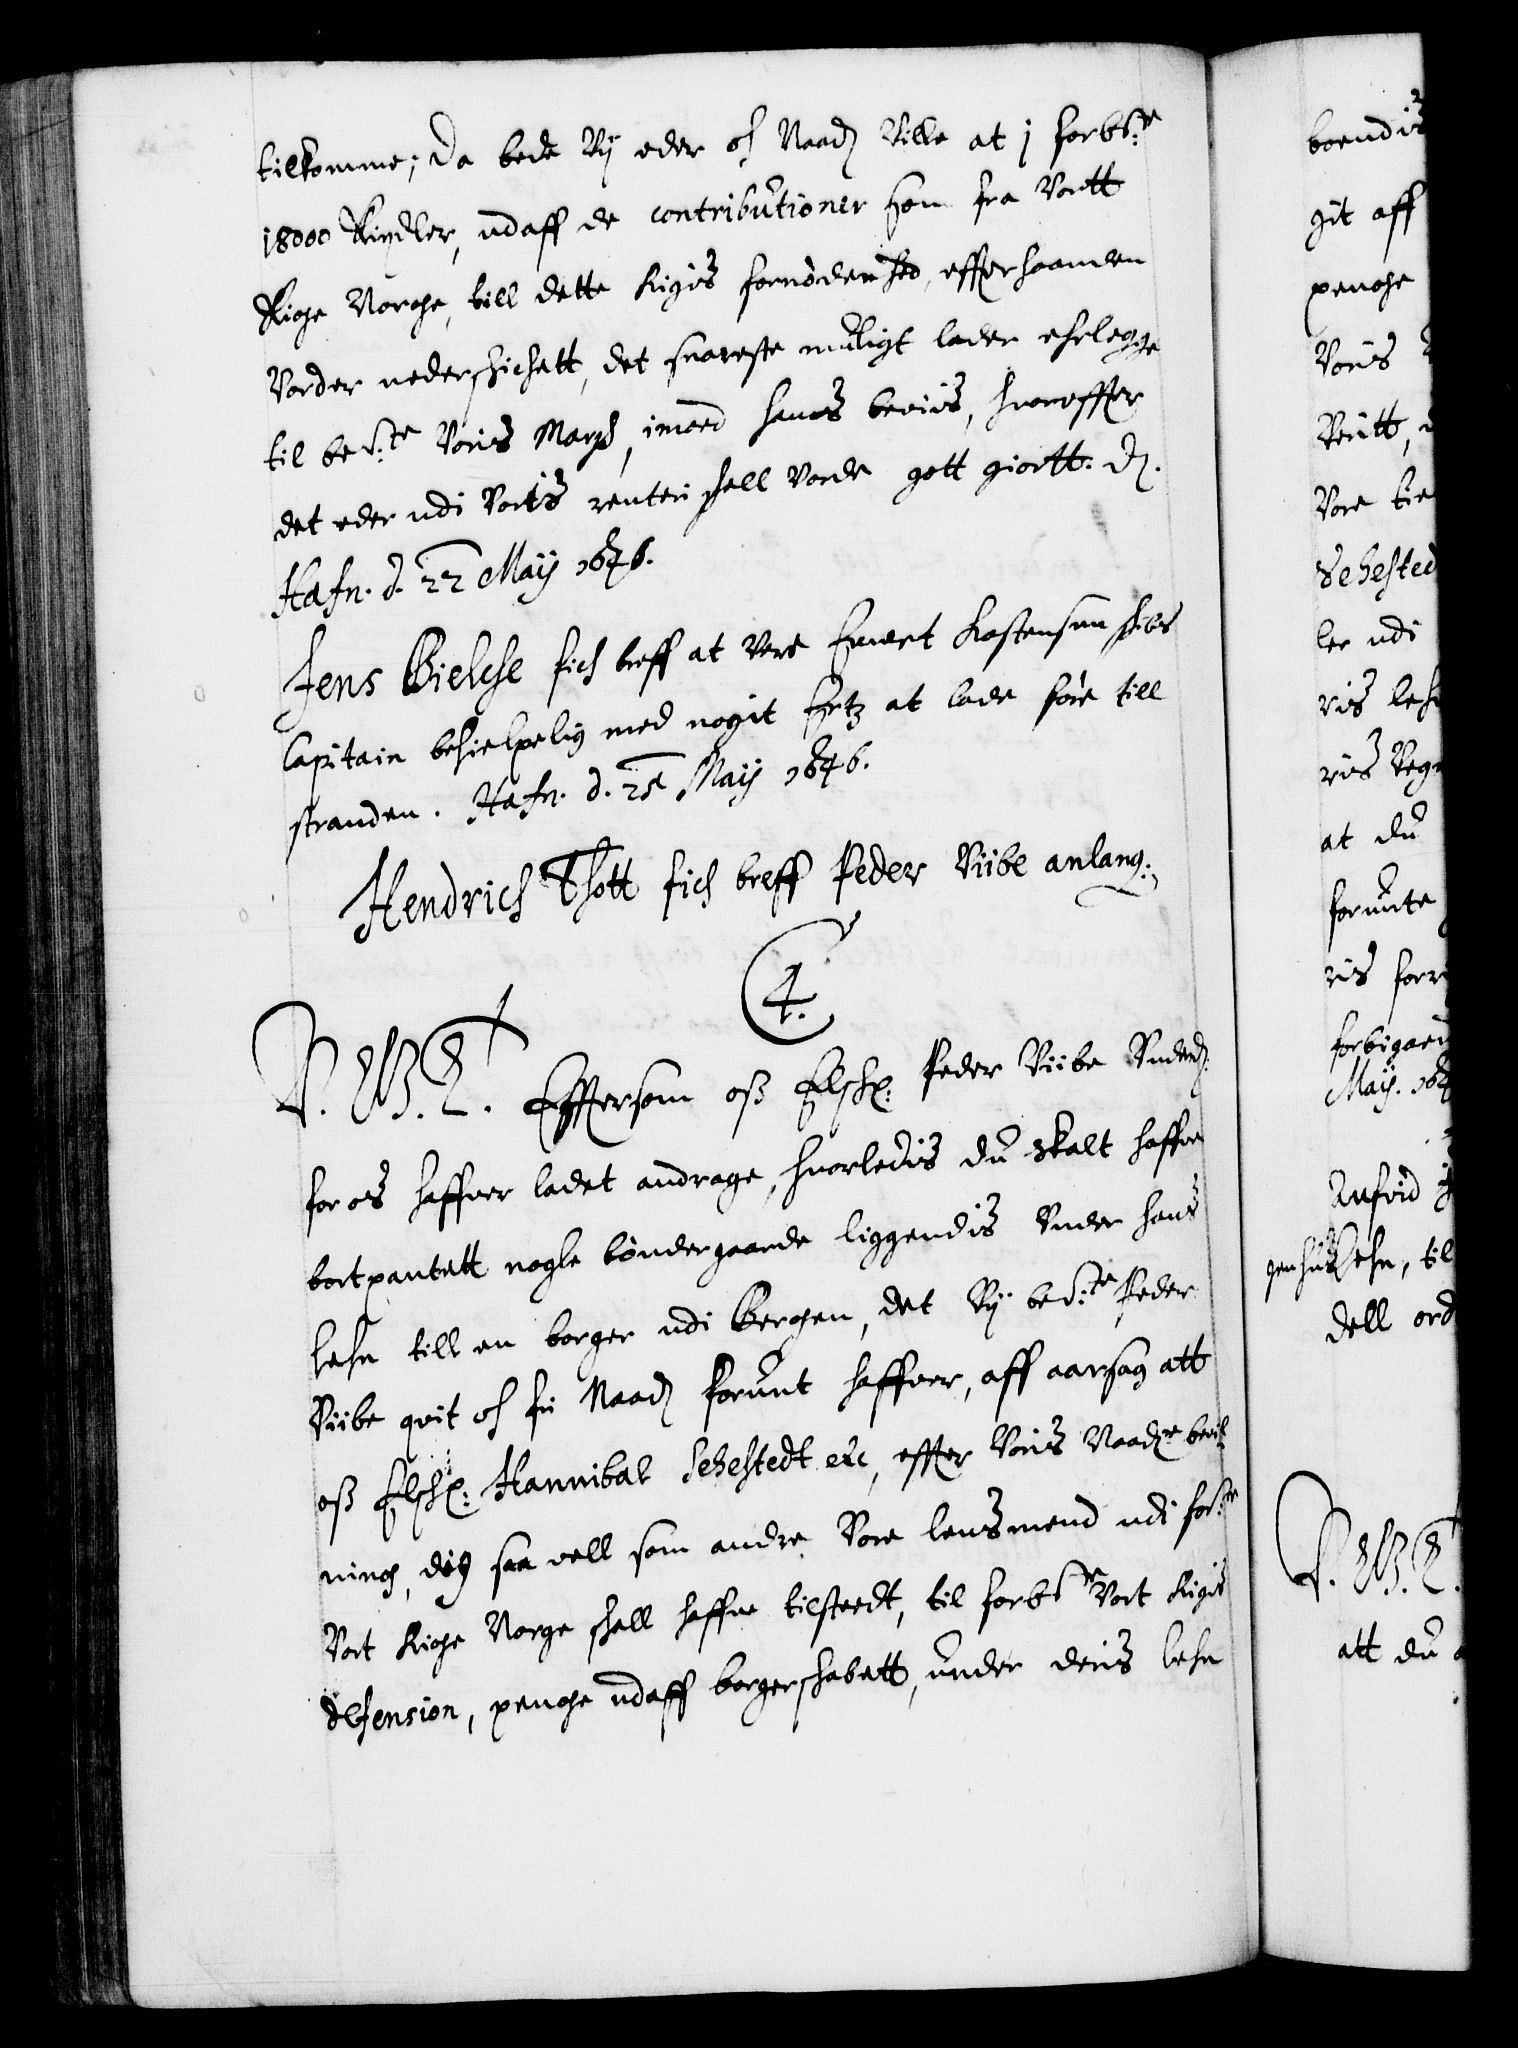 tilkomme; Da bede Vÿ eder oc Naad. Ville at j forbte
18000 Rixdler, udaff de contributioner som fra Vortt
Rige Norge, till dette Rigis fornødenhed, effterhaanden
Vorder nederschichett, det snareste muligt lader erlegge
til bete Voris March, imoed hans beviis, hvoreffter
det eder udi Vortis renteri schall Vorde gott giortt. D.
Hafn. d. 22 Maij 1646.
Jens Bielche fich breff at Vere Envert Karstensøn schibs
Capitain behielpelig med nogit Ertz at lade føre till
stranden. Hafn. d. 25 Maij 1646.
Hendrich Thott fich breff Peder Viibe anlang:
C 4.
V. G. T. Efftersom oss Elschel: Peder Viibe Underd.
for os haffver ladet andrage, hvorledis du skalt haffve
bortpantett nogle bøndergaarde liggendis Under hans
Lehn till en borger udi Bergen, det Vÿ bete Peder
Viibe qvit oc fri Naad. forunt haffver, aff aarsag att
oss Elschel: Hannibal Sehestedt etc, effter Voris Naadste bevil
ning, dig saa vell som andre Vore lensmend udi forte
Vort Rige Norge schall haffve tilstedt, til forbte Vort Rigis
defension, penge udaff borgerschabett, under deris lehn
boendis
git aff
penge
Voris
Rentt,
Vore tie
Sehested
ler udi
ris leh
ris Regn
at du
forunte
ris forr
forbigaen
Maij. 164
Anfrid
genhus Lehn, til
dell ord
V. G. T.
att du